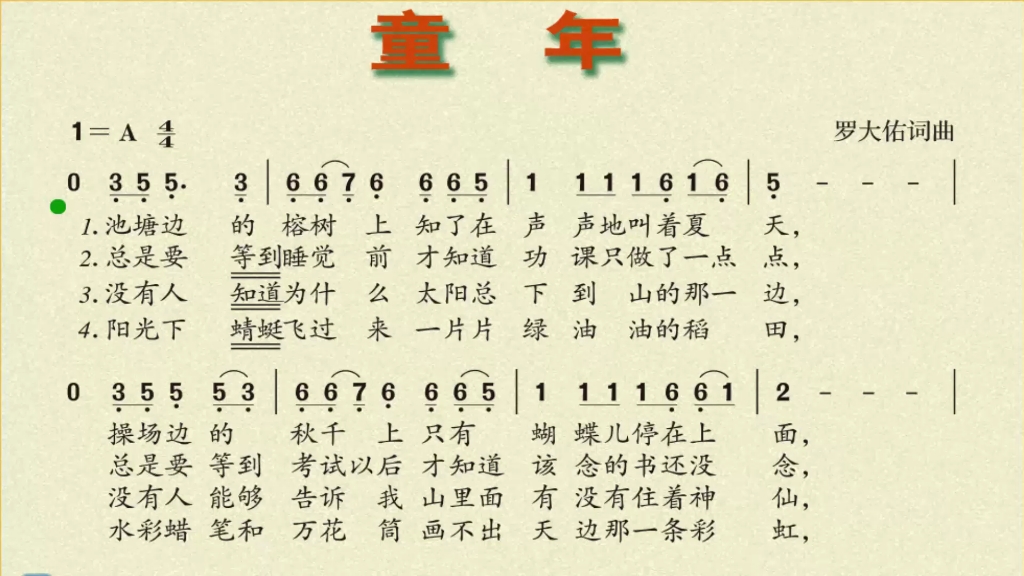 童 年
1= A 4/4
罗大佑词曲
0 3 5 5. 3 | 6 6 7 6 6 6 5 | 1 1 1 1 6 1 6 | 5 - - - |
1.池塘边 的 榕树 上 知了在 声 声地叫着夏 天，
2.总是要 等到睡觉 前 才知道 功 课只做了一点 点，
3.没有人 知道为什 么 太阳总 下 到 山的那一 边，
4.阳光下 蜻蜓飞过 来 一片片 绿 油 油的稻 田，
0 3 5 5 5 3 | 6 6 7 6 6 6 5 | 1 1 1 1 6 6 1 | 2 - - - |
操场边 的 秋千 上 只有 蝴 蝶儿停在上 面，
总是要 等到 考试以后 才知道 该 念的书还没 念，
没有人 能够 告诉 我 山里面 有 没有住着神 仙，
水彩蜡 笔和 万花 筒 画不出 天 边那一条彩 虹，